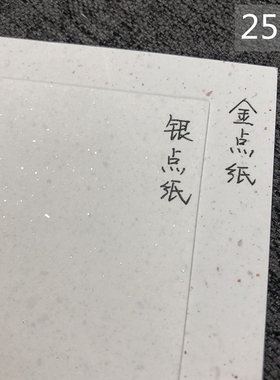 25
金点纸
银点纸